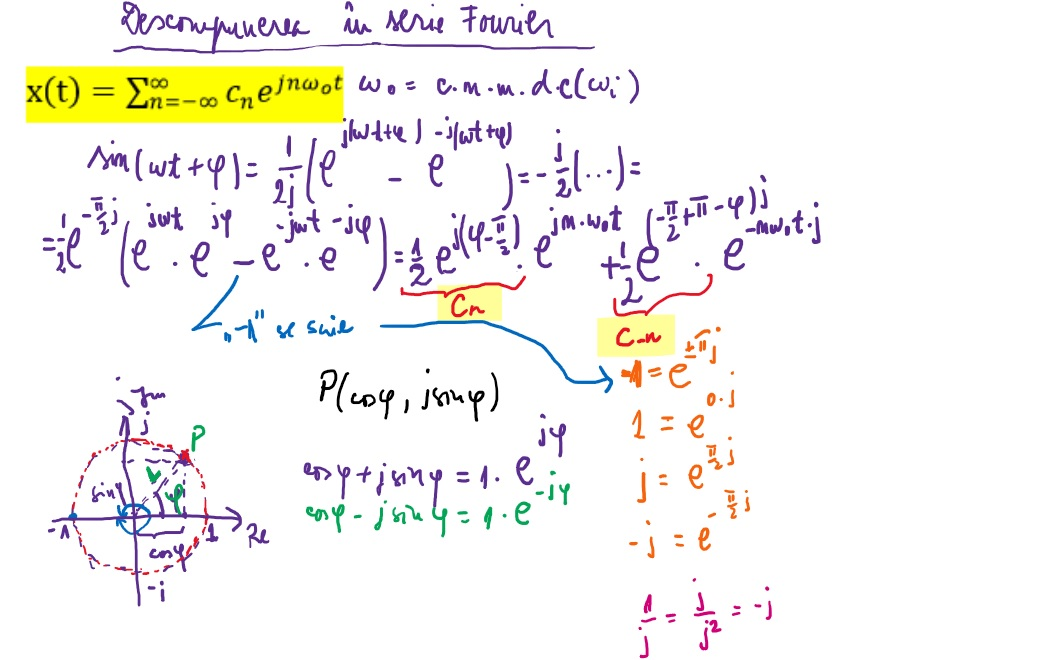 Descompunerea în serie Fourier
x(t) = ∑_{n=-∞}^{∞} c_n e^{jnω_o t} ω_o = c.m.m.d.c(ω_i)
sin(ωt+φ) = 1/2j (e^{j(ωt+φ)} - e^{-j(ωt+φ)}) = -j/2 (...) =
= 1/2 e^{-π/2 j} (e^{jωt} · e^{jφ} - e^{-jωt} · e^{-jφ}) = 1/2 e^{j(φ-π/2)} · e^{jm·ω_o t} + 1/2 e^{(-π/2+π-φ)j} · e^{-mω_o t·j}
Cn
C-n
„-1" se scrie
-1 = e^{±πj}
P(cosφ, jsinφ)
1 = e^{0·j}
cosφ + jsinφ = 1· e^{jφ}
j = e^{π/2 j}
cosφ - jsinφ = 1· e^{-jφ}
-j = e^{-π/2 j}
Jm
j
P
sinφ
φ
-1
1
Re
cosφ
-j
1/j = j/j² = -j